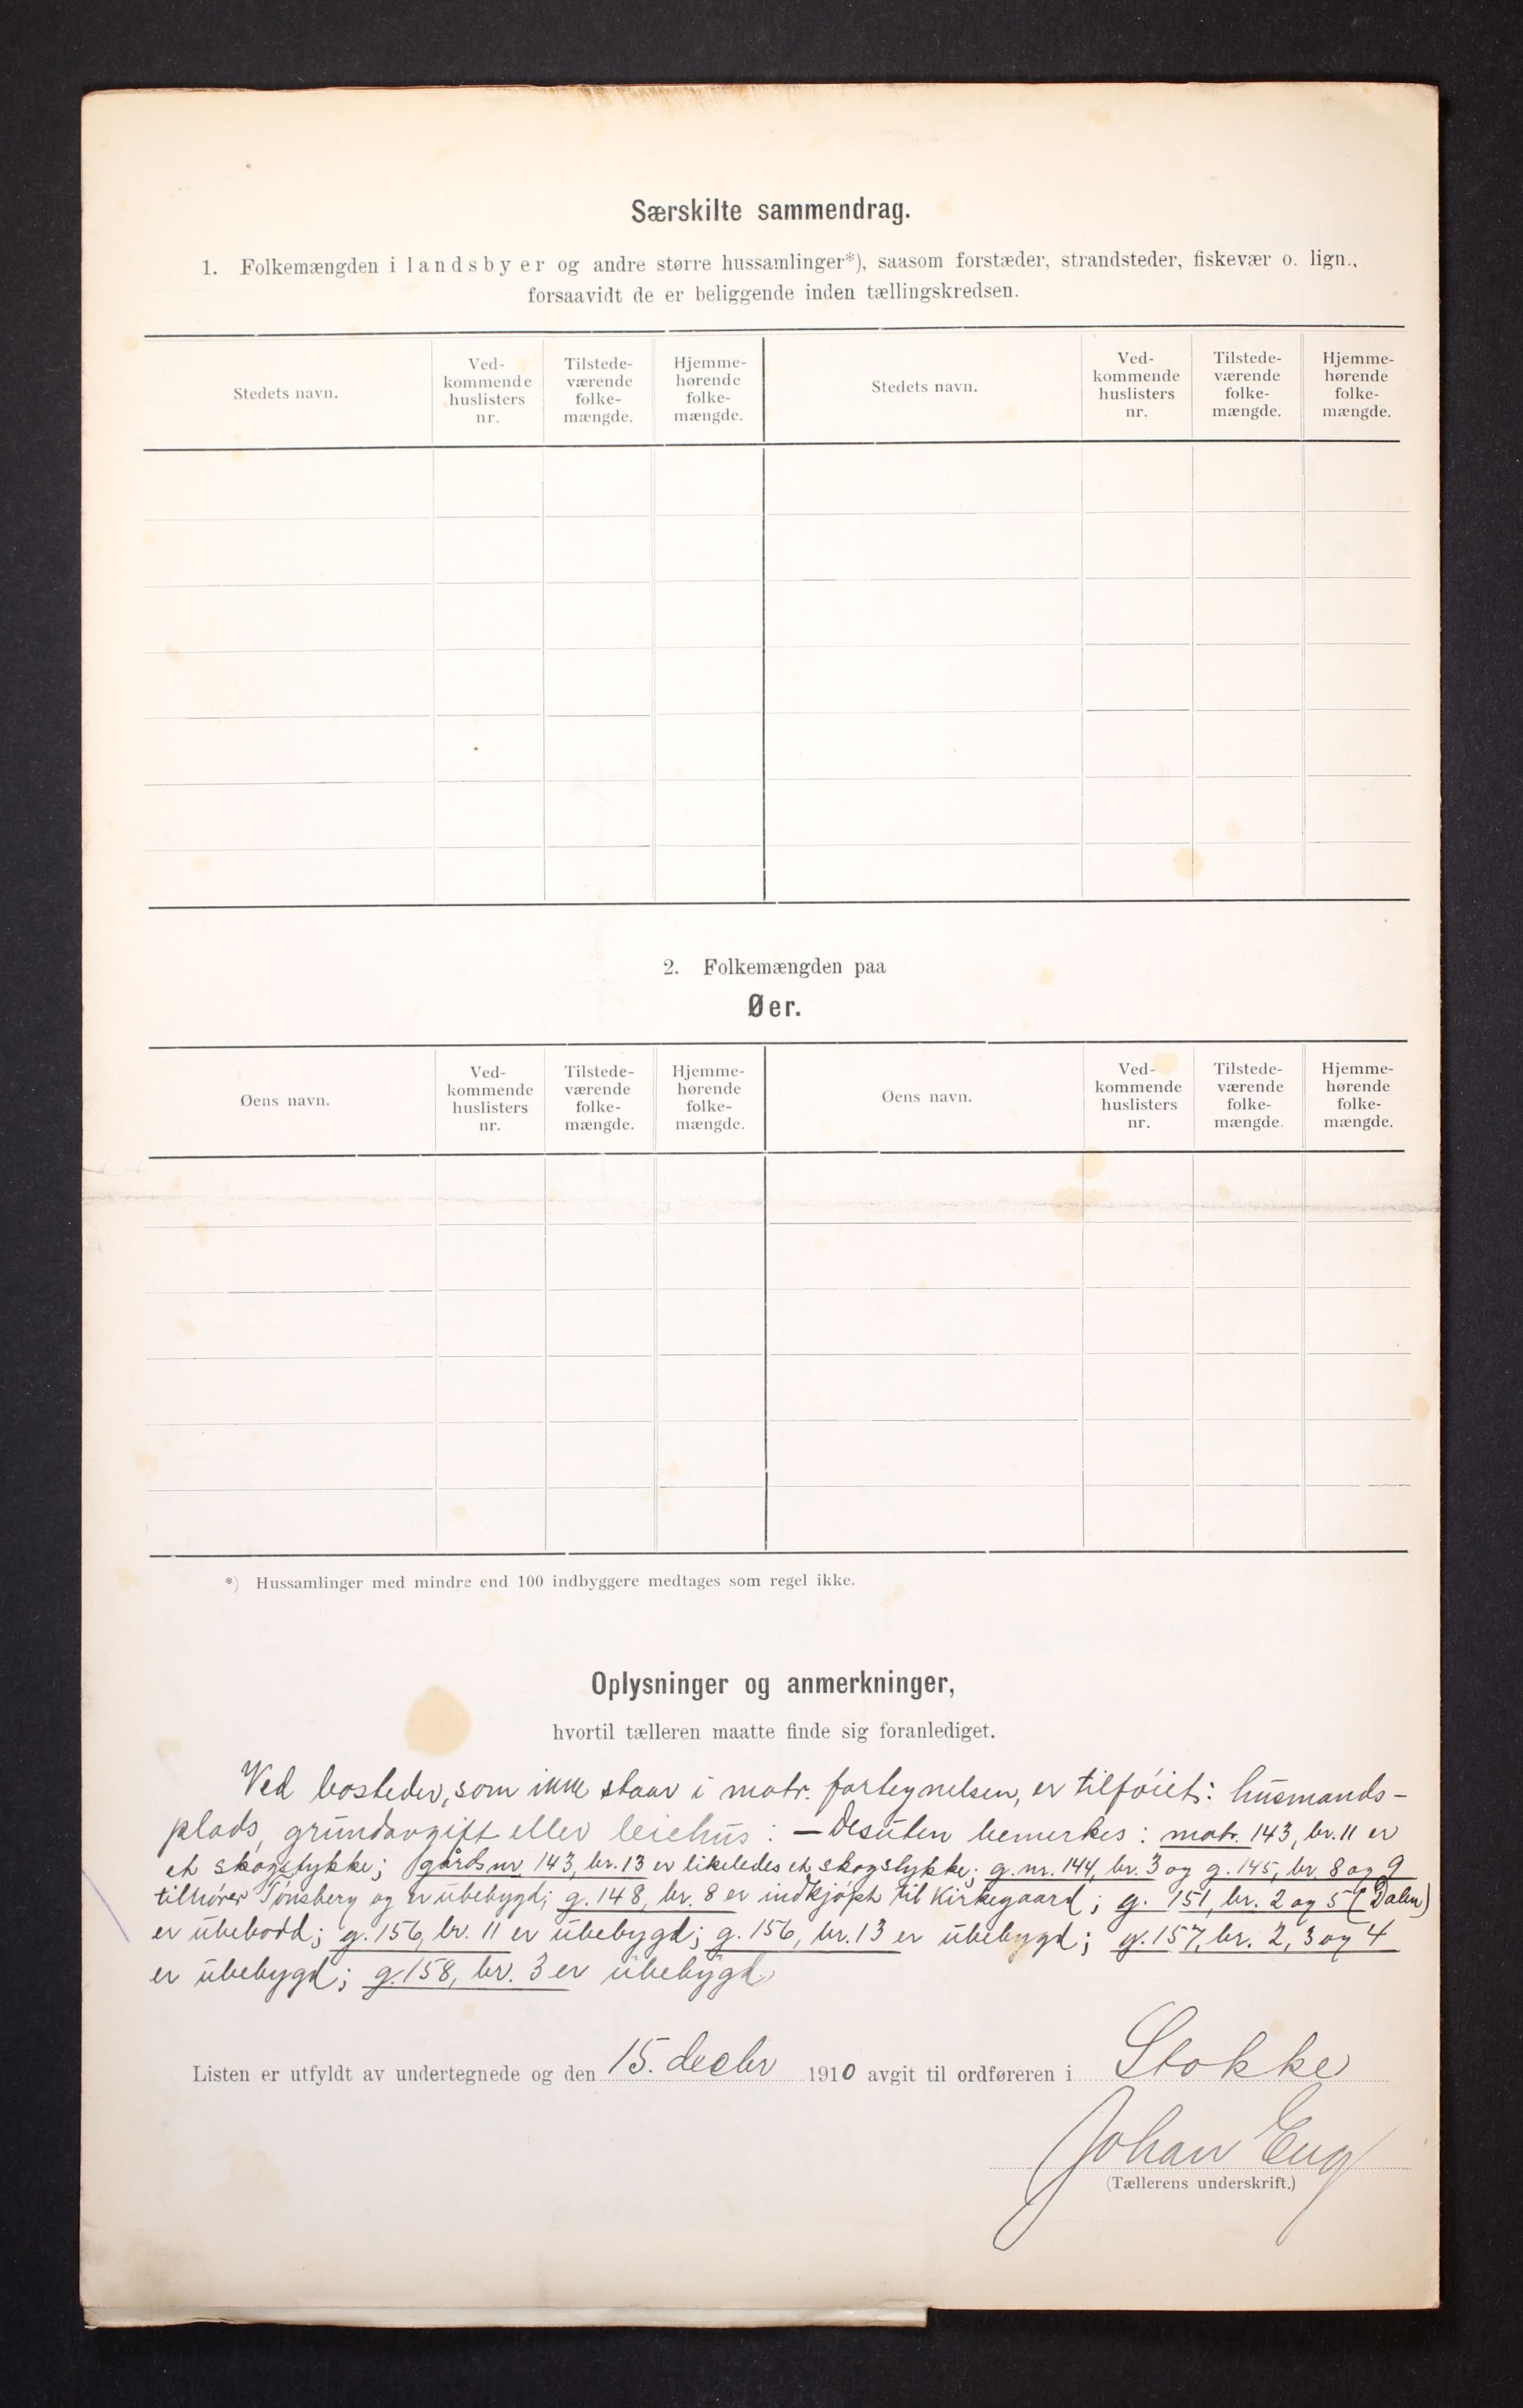 Særskilte sammendrag.
1. Folkemængden i landsbyer og andre større hussamlinger*), saasom forstæder, strandsteder, fiskevær o. lign.,
forsaavidt de er beliggende inden tællingskredsen.
Stedets navn.
Ved-
kommende
huslisters
nr.
Tilstede-
værende
folke-
mængde.
Hjemme-
hørende
folke-
mængde.
Stedets navn.
Ved-
kommende
huslisters
nr.
Tilstede-
værende
folke-
mængde.
Hjemme-
hørende
folke-
mængde.
2. Folkemængden paa
Øer.
Øens navn.
Ved-
kommende
huslisters
nr.
Tilstede-
værende
folke-
mængde.
Hjemme-
hørende
folke-
mængde.
Øens navn.
Ved-
kommende
huslisters
nr.
Tilstede-
værende
folke-
mængde.
Hjemme-
hørende
folke-
mængde.
*) Hussamlinger med mindre end 100 indbyggere medtages som regel ikke.
Oplysninger og anmerkninger,
hvortil tælleren maatte finde sig foranlediget.
Ved bosteder, som ikke staar i matr. fortegnelsen, er tilføiet: husmands-
plads, grundavgift eller leiehus: — Desuten bemerkes: matr. 143, br. 11 er
et skogstykke; gårdsnr 143, br. 13 er likeledes et skogstykke; g. nr. 144, br. 3 og g. 145, br 8 og 9
tilhører Tønsberg og er ubebygd; g. 148, br. 8 er indkjøpt til Kirkegaard; g. 151, br. 2 og 5 (Dalen)
er ubebodd; g. 156, br. 11 er ubebygd; g. 156, br. 13 er ubebygd; g. 157, br. 2, 3 og 4
er ubebygd; g. 158, br. 3 er ubebygd
Listen er utfyldt av undertegnede og den 15. decbr 1910 avgit til ordføreren i Stokke
Johan Eug
(Tællerens underskrift.)